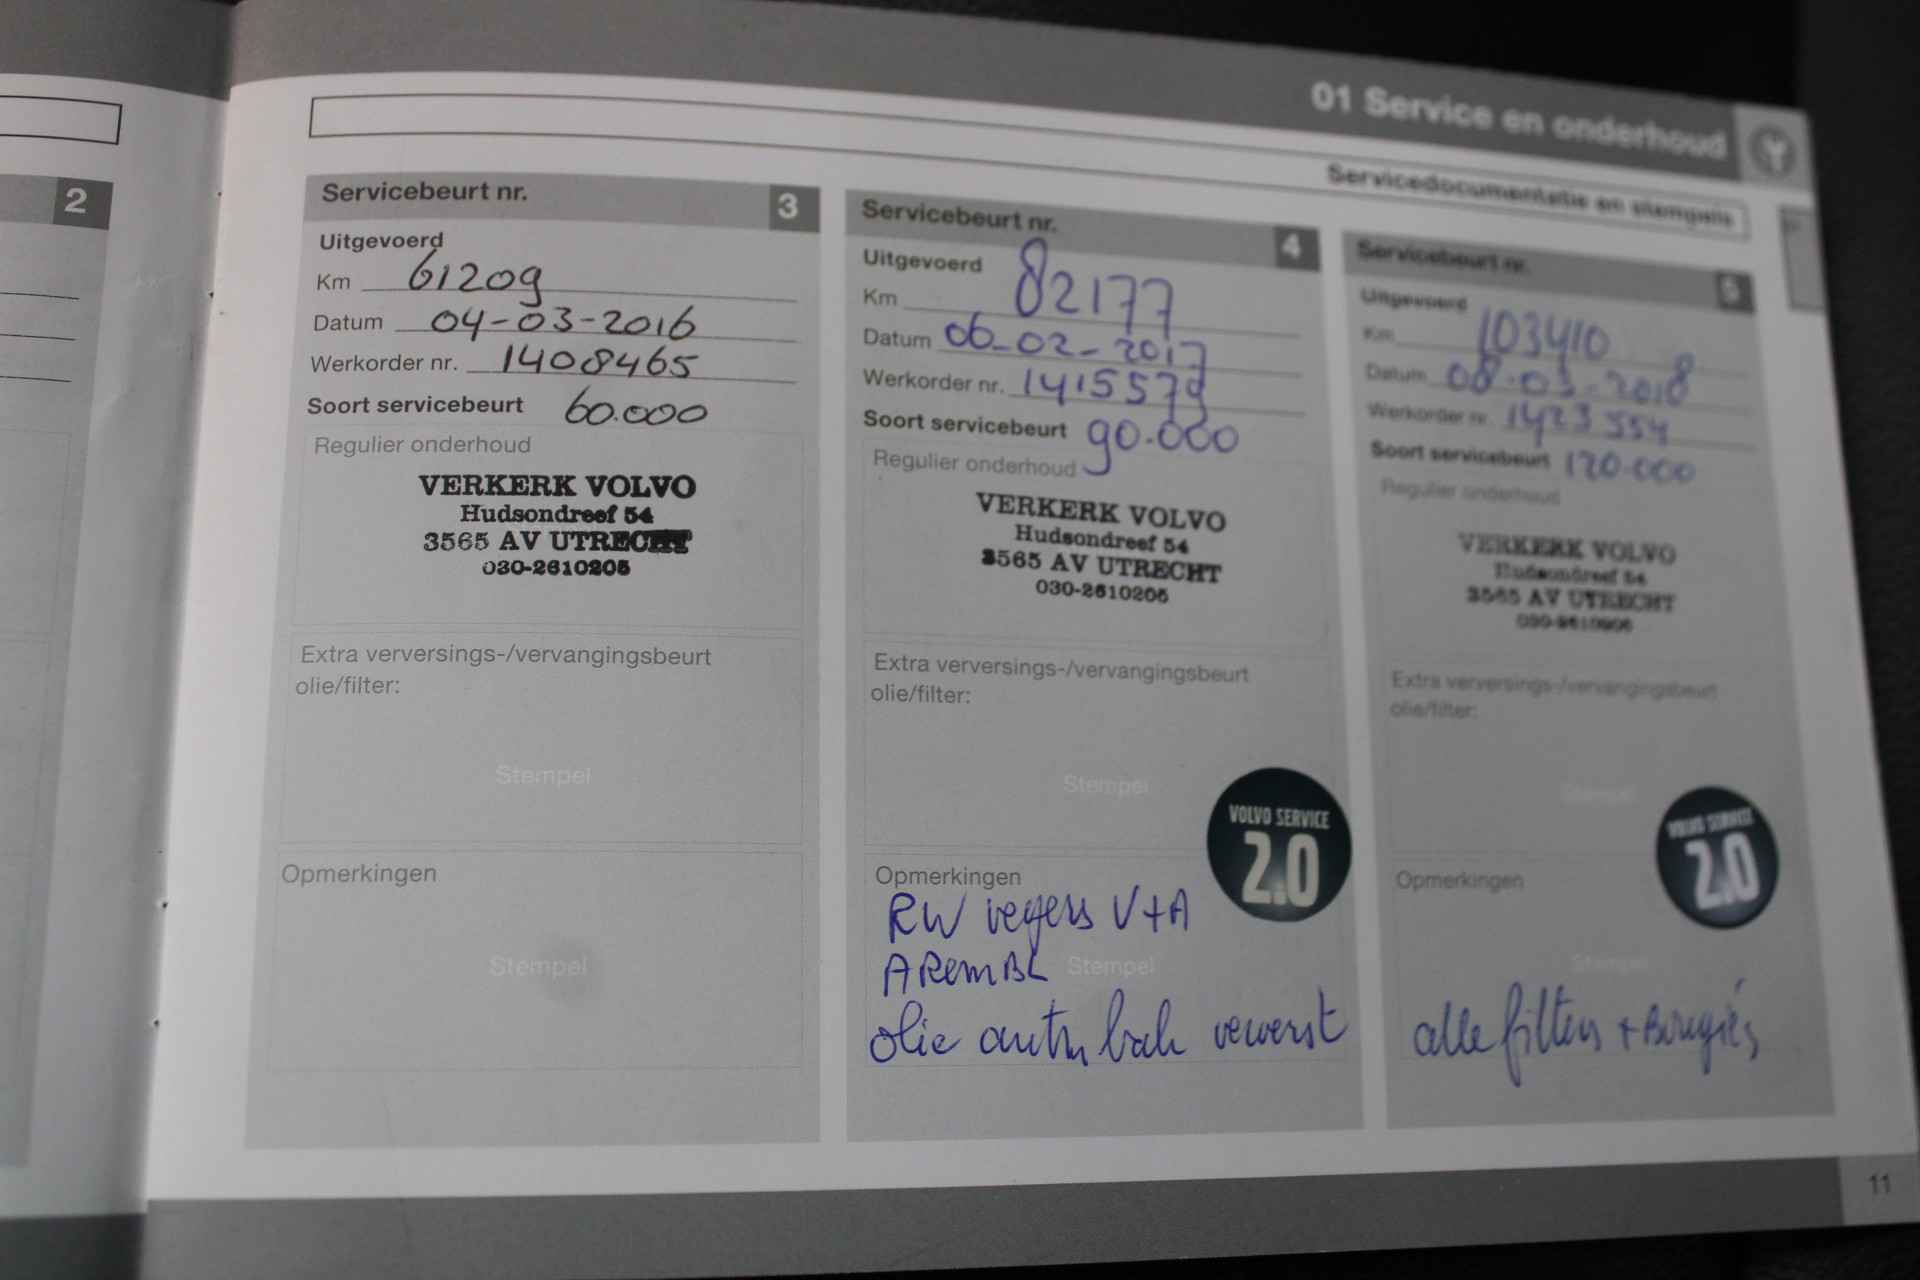 01 Service en onderhoud
Servicedocumentatie en stempels
2
Servicebeurt nr. 3
Uitgevoerd
Km 61209
Datum 04-03-2016
Werkorder nr. 1408465
Soort servicebeurt 60.000
Regulier onderhoud
VERKERK VOLVO
Hudsondreef 54
3565 AV UTRECHT
030-2610205
Extra verversings-/vervangingsbeurt
olie/filter:
Stempel
Opmerkingen
Stempel
Servicebeurt nr. 4
Uitgevoerd
Km 82177
Datum 06-02-2017
Werkorder nr. 1415579
Soort servicebeurt 90.000
Regulier onderhoud
VERKERK VOLVO
Hudsondreef 54
3565 AV UTRECHT
030-2610205
Extra verversings-/vervangingsbeurt
olie/filter:
Stempel
VOLVO SERVICE
2.0
Opmerkingen
RW vegers V+A
A Rem BL
Stempel
olie autm bak ververst
Servicebeurt nr. 5
Uitgevoerd
Km 103410
Datum 08-03-2018
Werkorder nr. 1423554
Soort servicebeurt 120.000
Regulier onderhoud
VERKERK VOLVO
Hudsondreef 54
3565 AV UTRECHT
030-2610205
Extra verversings-/vervangingsbeurt
olie/filter:
Stempel
VOLVO SERVICE
2.0
Opmerkingen
Stempel
alle filters + Bougies
11